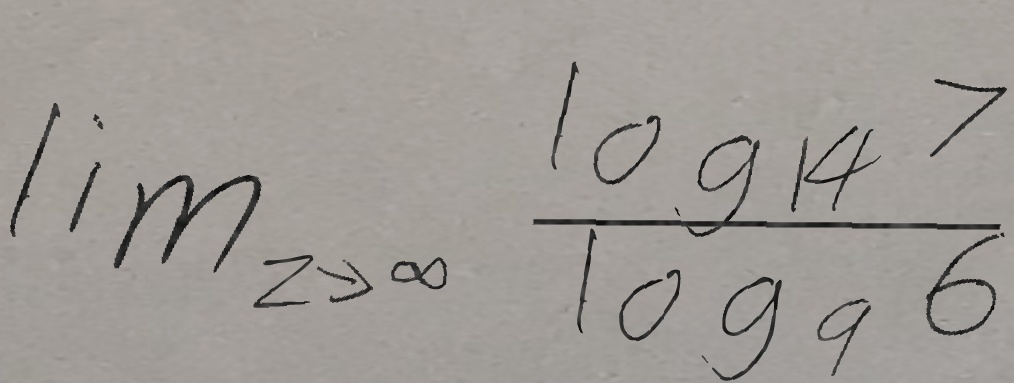 lim_{z→∞} \frac{log_{14} 7}{log_{9} 6}